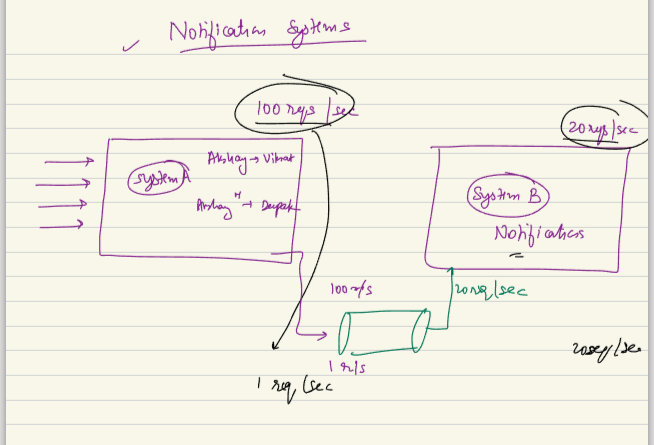 Notification Systems
100 reqs/sec
20 reqs/sec
System A
Akshay → Virat
Akshay → Deepak
System B
Notifications
100 r/s
20 req/sec
1 r/s
1 req/sec